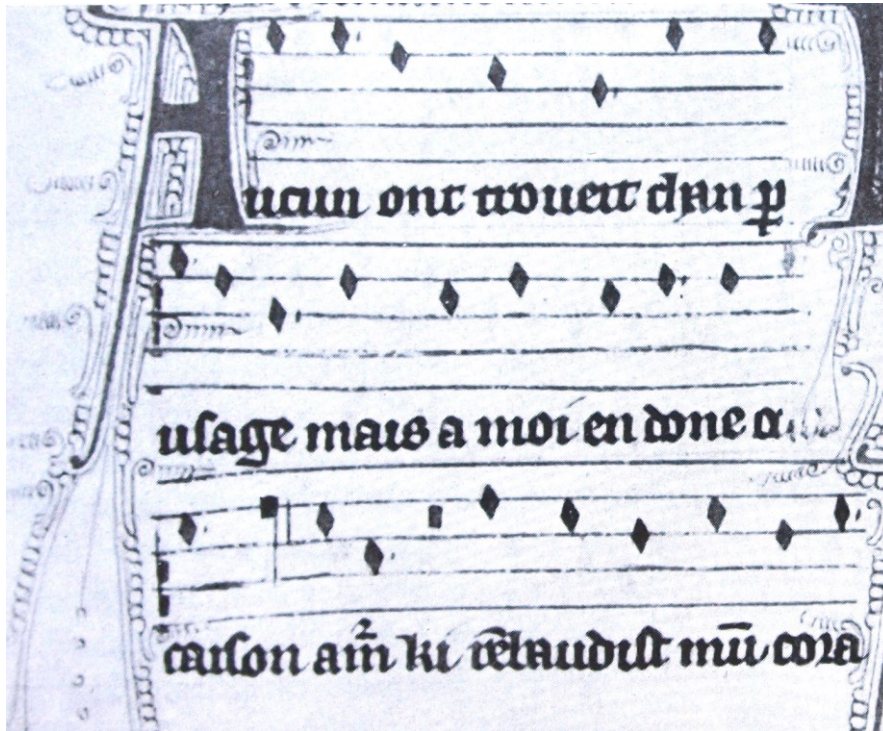 Aucun ont troueit chan ꝑ
uſage mais a moi en done o
caiſon am̄ ki rēbaudiſt mū cora